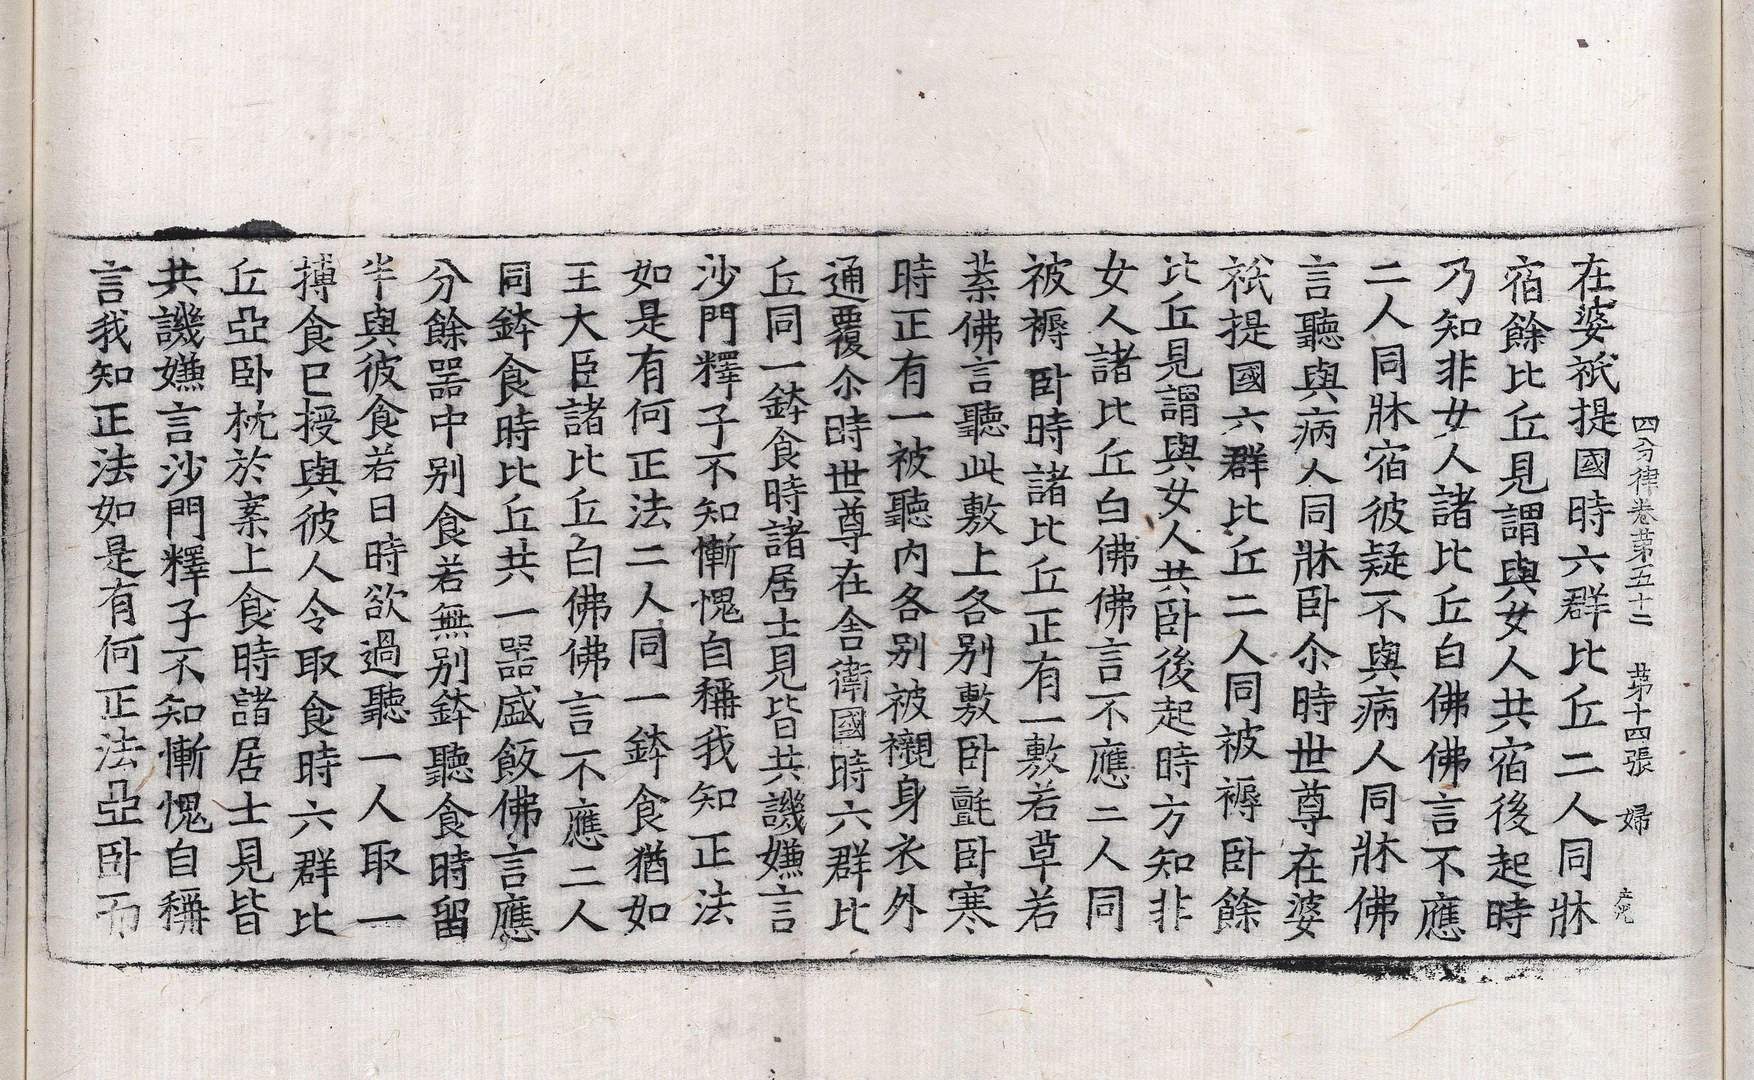 四分律卷苐五十二 苐十四張 婦
在婆祇提國時六群比丘二人同牀
宿餘比丘見謂與女人共宿後起時
乃知非女人諸比丘白佛佛言不應
二人同牀宿彼疑不與病人同牀佛
言聽與病人同牀卧尒時世尊在婆
祇提國六群比丘二人同被褥卧餘
比丘見謂與女人共卧後起時方知非
女人諸比丘白佛佛言不應二人同
被褥卧時諸比丘正有一敷若草若
葉佛言聽此敷上各別敷卧氈卧寒
時正有一被聽内各別被襯身衣外
通覆尒時世尊在舍衛國時六群比
丘同一鉢食時諸居士見皆共譏嫌言
沙門釋子不知慚愧自稱我知正法
如是有何正法二人同一鉢食猶如
王大臣諸比丘白佛佛言不應二人
同鉢食時比丘共一器盛飯佛言應
分餘器中別食若無別鉢聽食時留
半與彼食若日時欲過聽一人取一
摶食已授與彼人令取食時六群比
丘亞卧枕於案上食時諸居士見皆
共譏嫌言沙門釋子不知慚愧自稱
言我知正法如是有何正法亞卧而